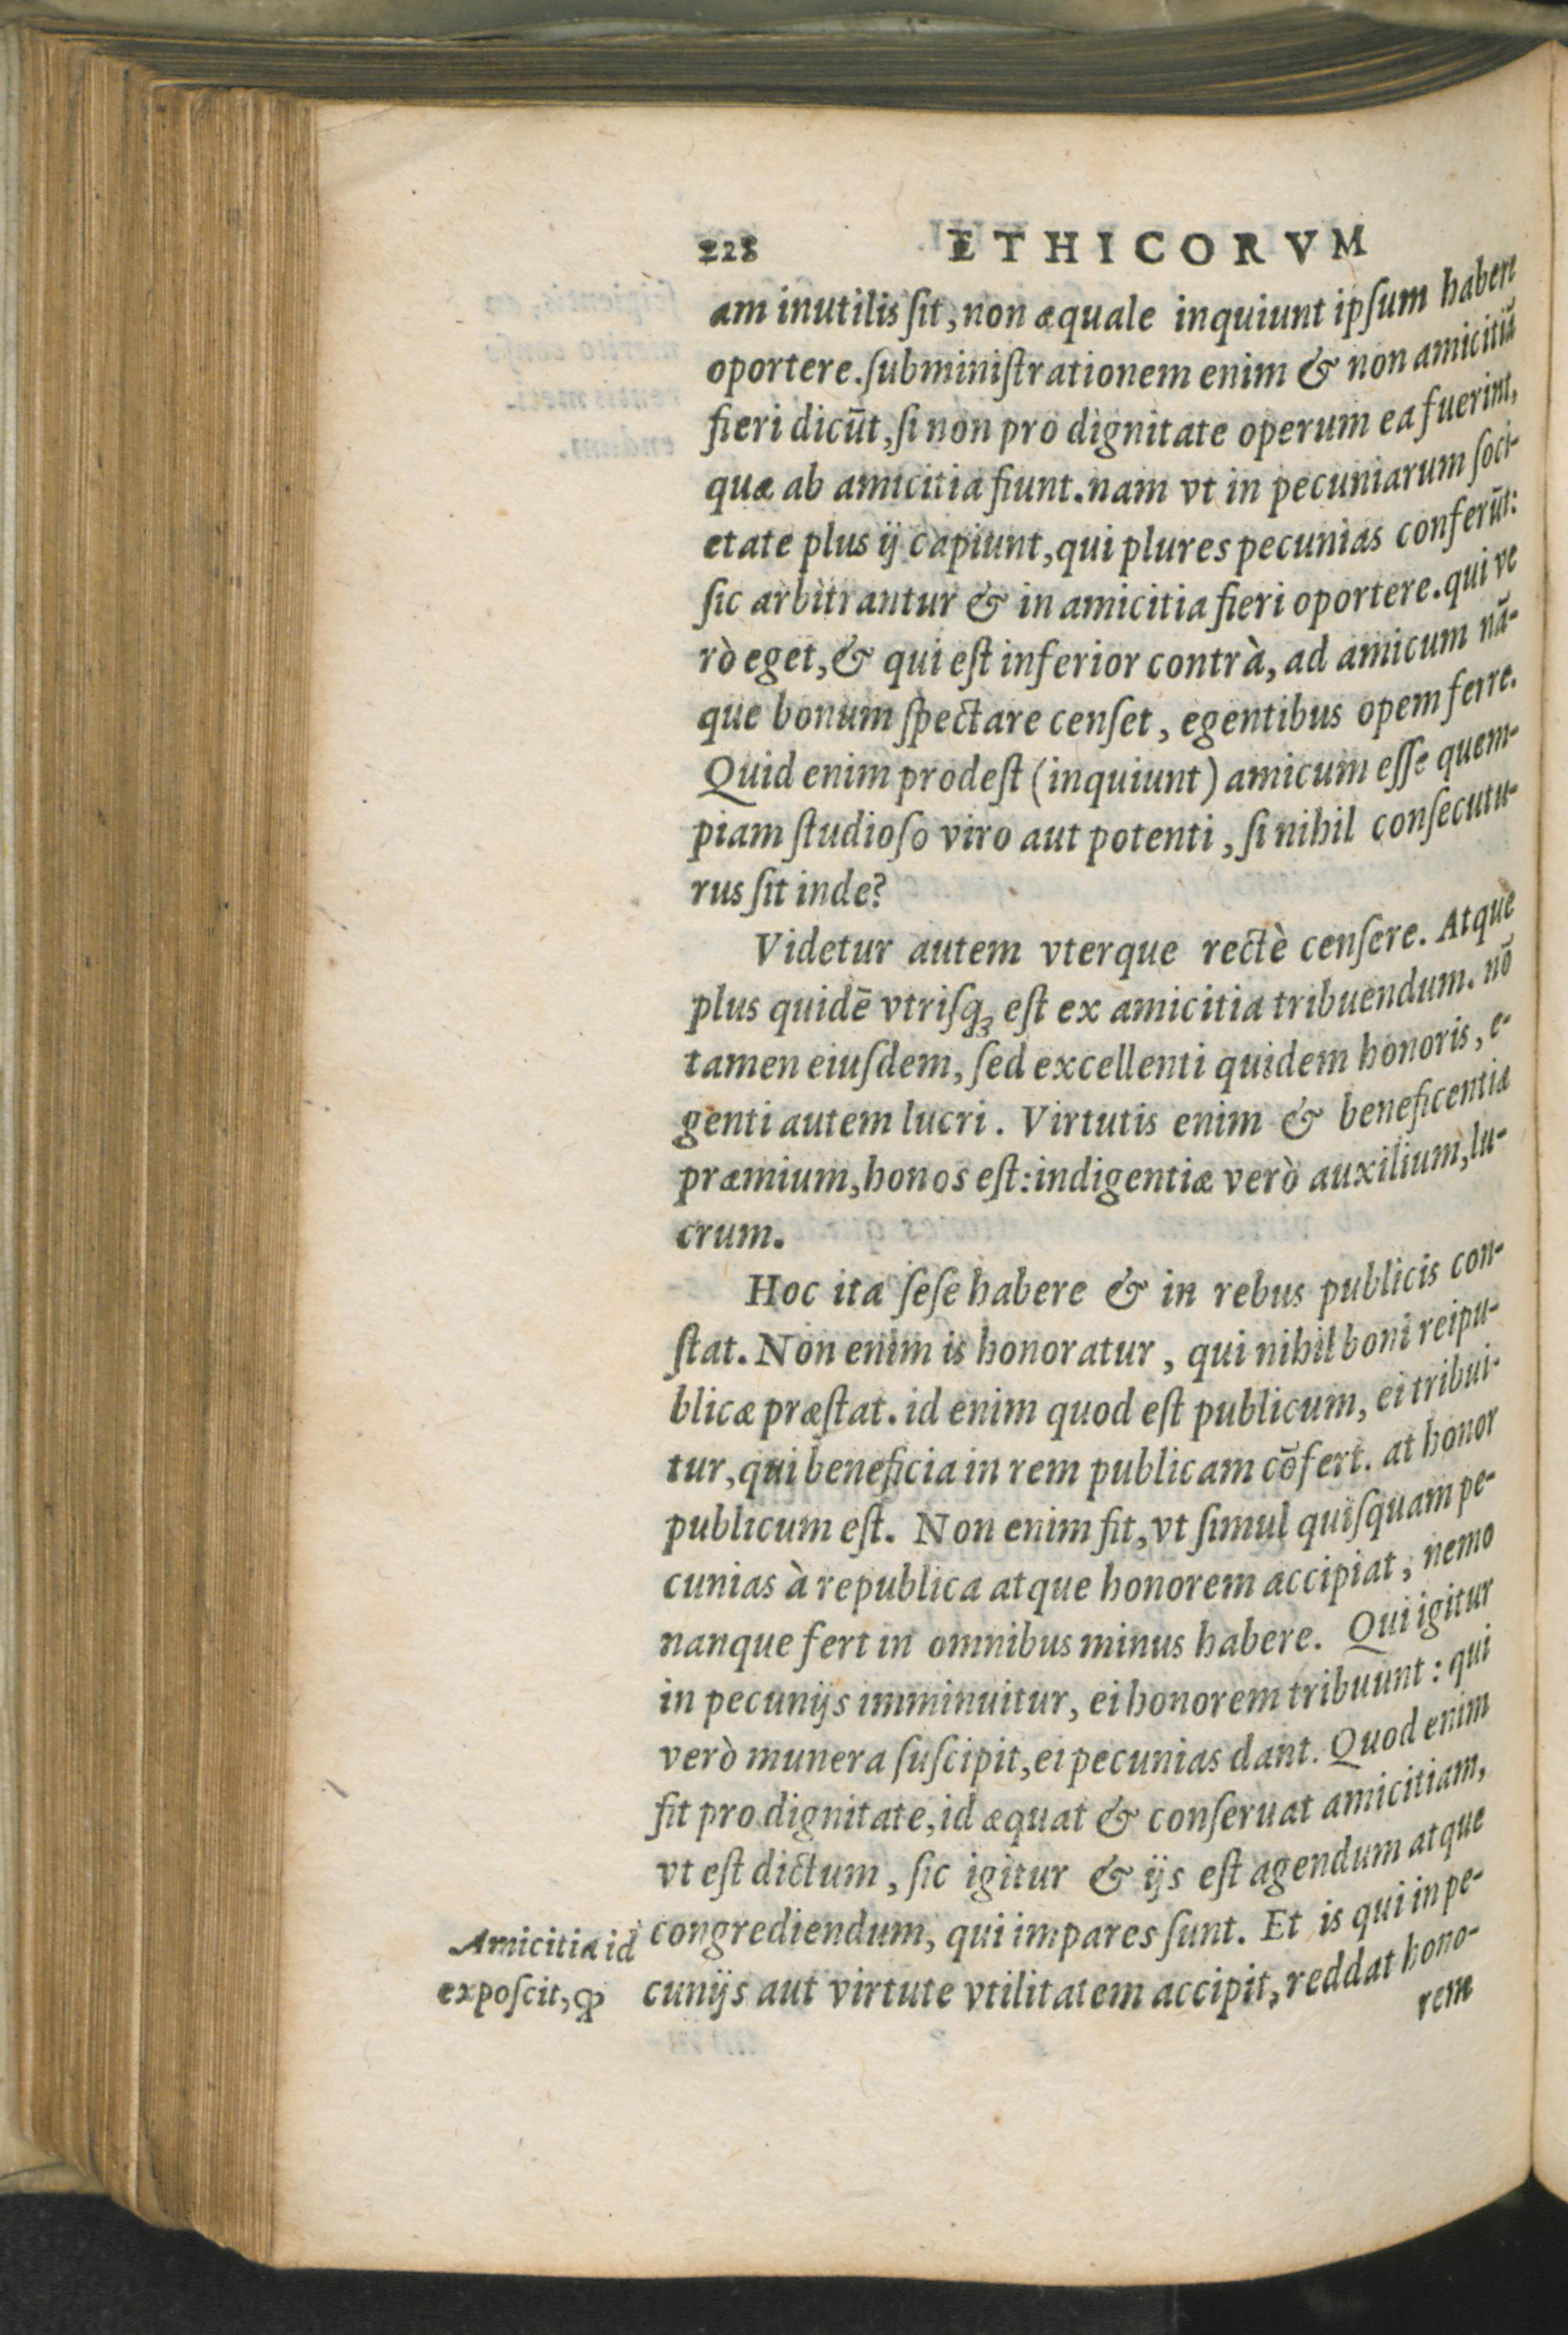 228 ETHICORVM
am inutilis ſit, non æquale inquiunt ipſum habere
oportere. ſubminiſtrationem enim & non amicitiā
fieri dicūt, ſi non pro dignitate operum ea fuerint,
quæ ab amicitia fiunt. nam vt in pecuniarum ſoci-
etate plus ij capiunt, qui plures pecunias conferūt:
ſic arbitrantur & in amicitia fieri oportere. qui ve
rò eget, & qui eſt inferior contrà, ad amicum nā-
que bonum ſpectare cenſet, egentibus opem ferre.
Quid enim prodeſt (inquiunt) amicum eſſe quem-
piam ſtudioſo viro aut potenti, ſi nihil conſecutu-
rus ſit inde?
Videtur autem vterque rectè cenſere. Atque
plus quidē vtriſqꝫ eſt ex amicitia tribuendum. nō
tamen eiuſdem, ſed excellenti quidem honoris, e-
genti autem lucri. Virtutis enim & beneficentiæ
præmium, honos eſt: indigentiæ verò auxilium, lu-
crum.
Hoc ita ſeſe habere & in rebus publicis con-
ſtat. Non enim is honoratur, qui nihil boni reipu-
blicæ præſtat. id enim quod eſt publicum, ei tribui-
tur, qui beneficia in rem publicam cōfert. at honor
publicum eſt. Non enim fit, vt ſimul quiſquam pe-
cunias à republica atque honorem accipiat, nemo
nanque fert in omnibus minus habere. Qui igitur
in pecunijs imminuitur, ei honorem tribuunt: qui
verò munera ſuſcipit, ei pecunias dant. Quod enim
fit pro dignitate, id æquat & conſeruat amicitiam,
vt eſt dictum, ſic igitur & ijs eſt agendum atque
congrediendum, qui impares ſunt. Et is qui in pe-
cunijs aut virtute vtilitatem accipit, reddat hono-
rem
Amicitia id
expoſcit, ꝙ